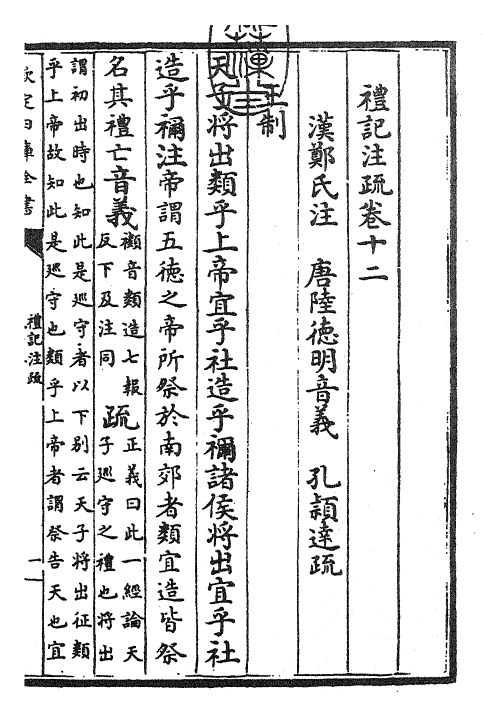 禮記注疏卷十二
漢鄭氏注　唐陸德明音義　孔穎達疏
王制
天子將出類乎上帝宜乎社造乎禰諸侯將出宜乎社
造乎禰注帝謂五德之帝所祭於南郊者類宜造皆祭
名其禮亡音義
禷音類造七報
反下及注同
疏
正義曰此一經論天
子廵守之禮也將出
謂初出時也知此是廵守者以下别云天子將出征類
乎上帝故知此是廵守也類乎上帝者謂祭告天也宜
欽定四庫全書
禮記注疏
一